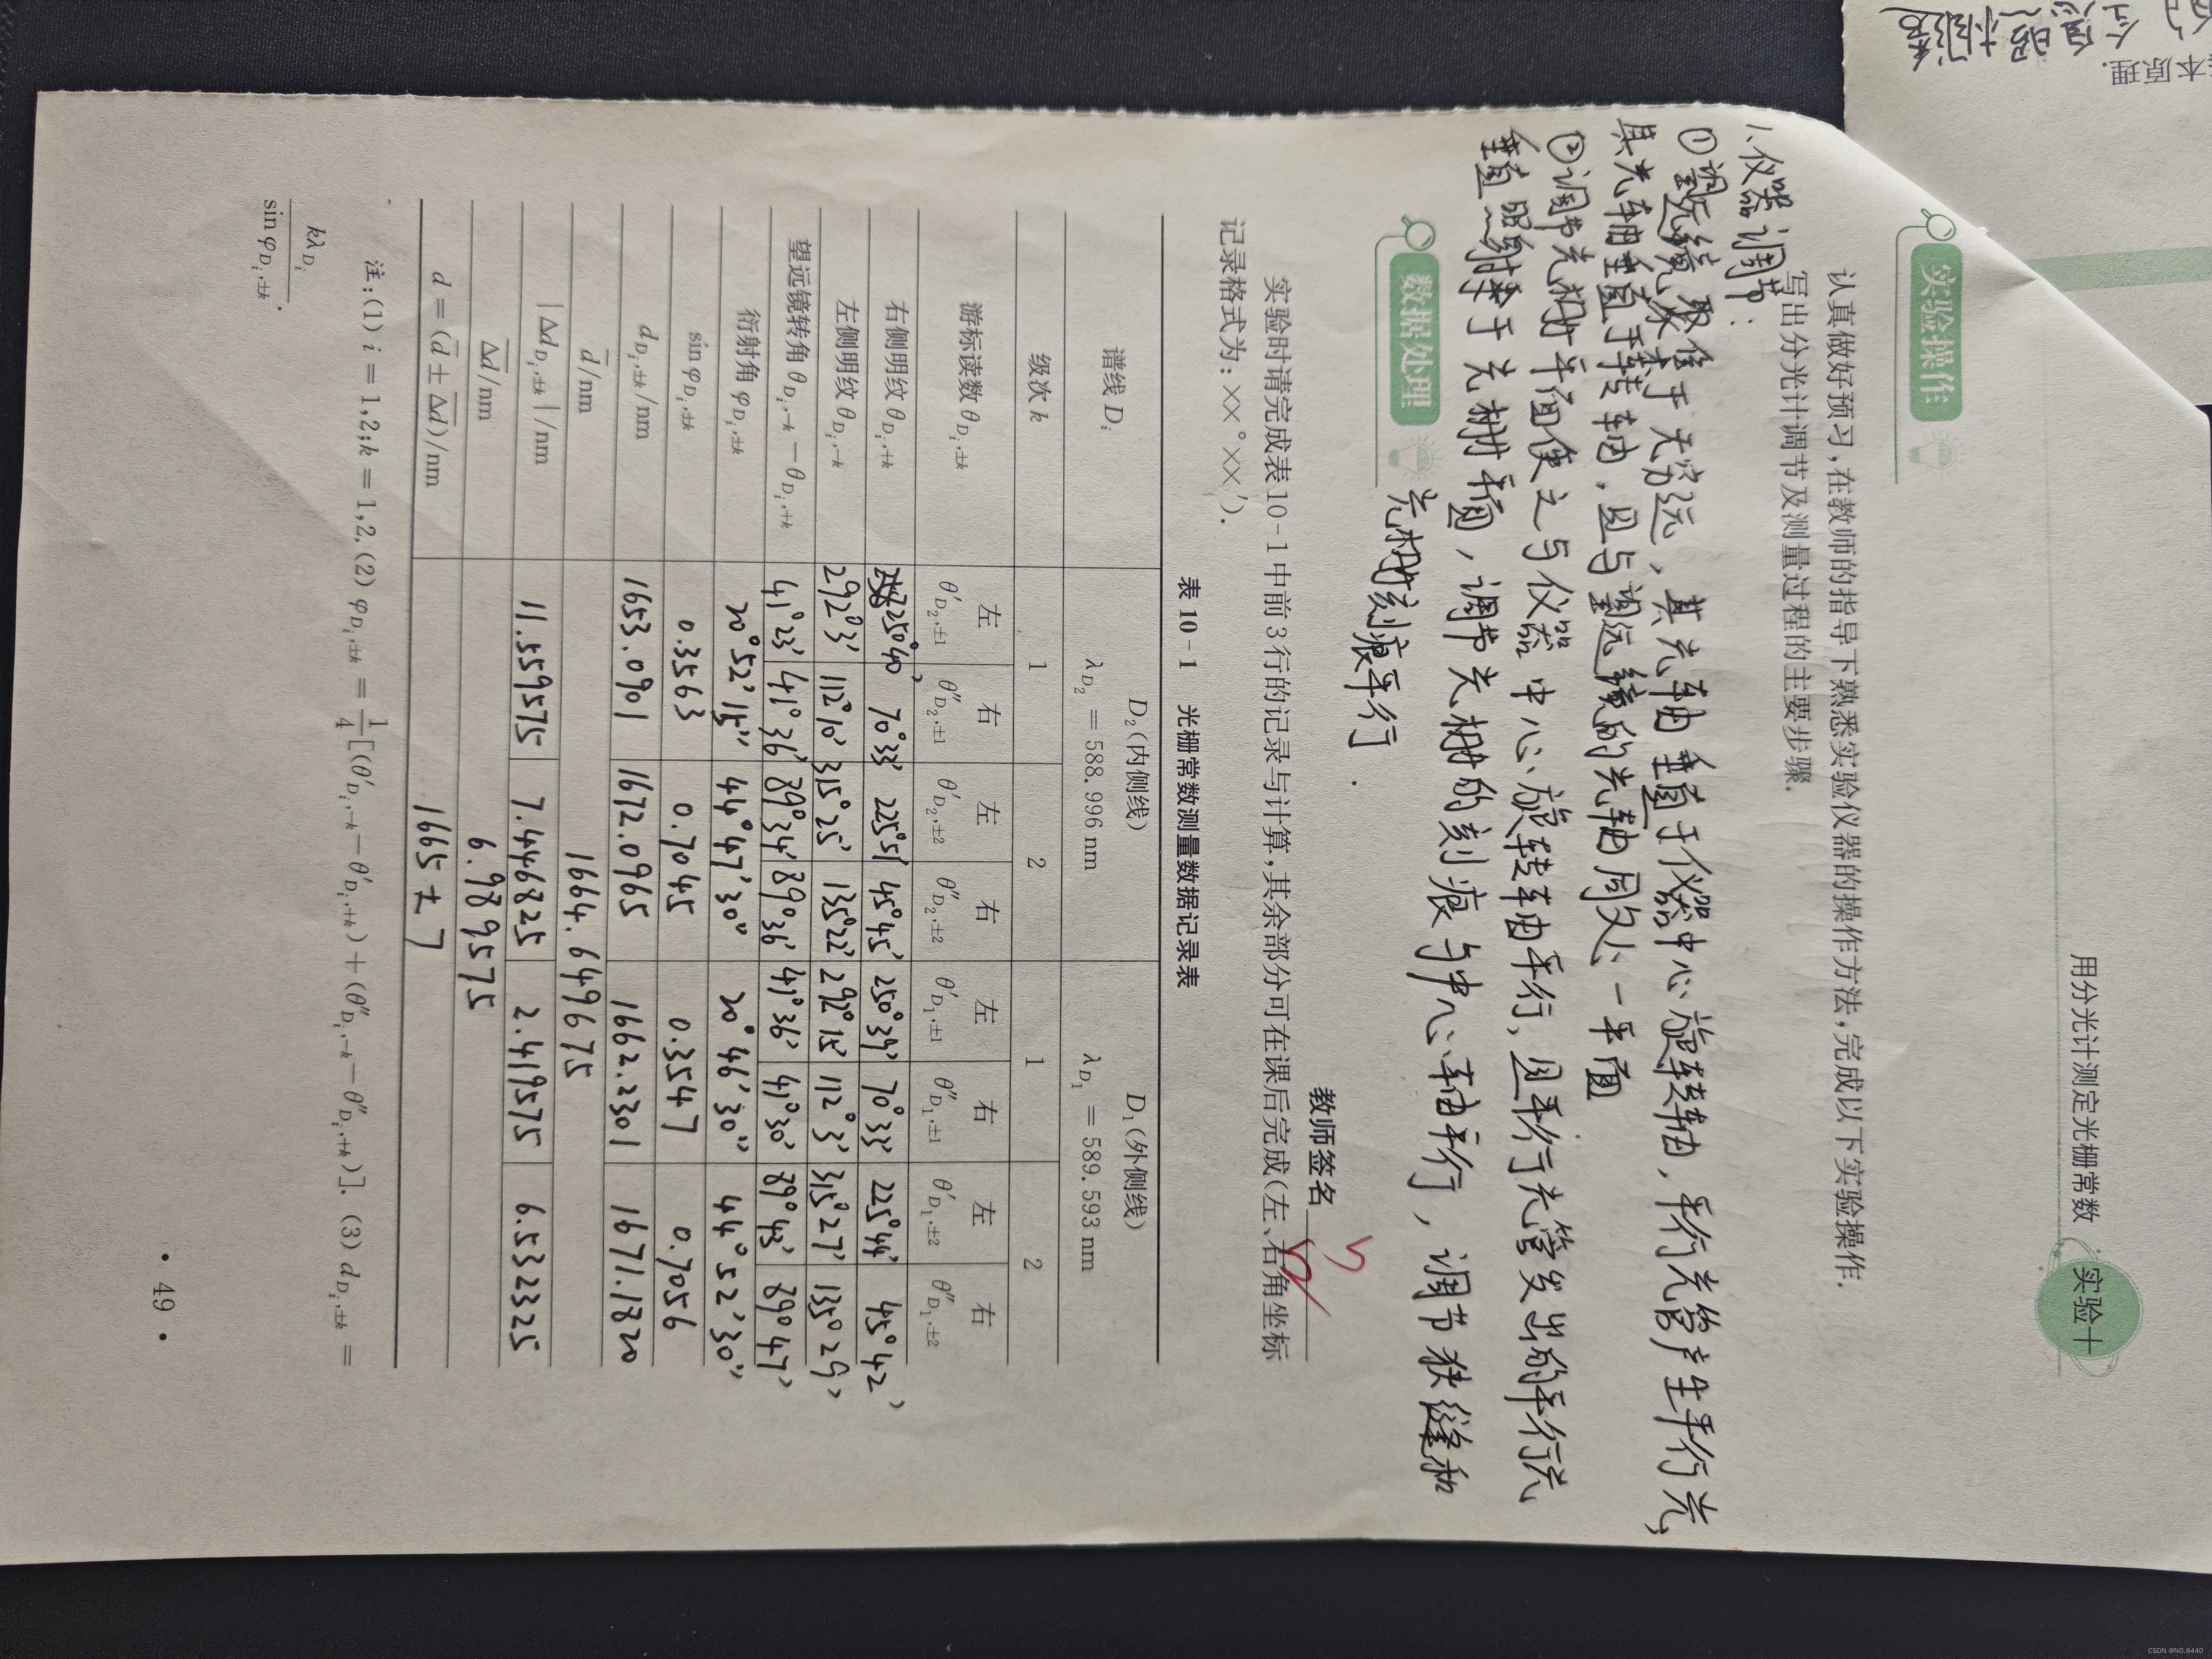 用分光计测定光栅常数 实验十
实验操作
认真做好预习,在教师的指导下熟悉实验仪器的操作方法,完成以下实验操作.
写出分光计调节及测量过程的主要步骤.
1.仪器调节:
①望远镜聚焦于无穷远,其光轴垂直于仪器中心旋转轴,平行光管产生平行光,
其光轴垂直于转轴,且与望远镜的光轴同处一平面
②调节光栅平面使之与仪器中心旋转轴平行,且平行光管发出的平行光
垂直照射于光栅平面,调节光栅的刻痕与中心轴平行,调节狭缝和
光栅刻痕平行.
数据处理
教师签名
实验时请完成表10-1中前3行的记录与计算,其余部分可在课后完成(左、右角坐标
记录格式为:××°××′).
表 10-1 光栅常数测量数据记录表
谱线 Di D2(内侧线) D1(外侧线)
λD2 = 588.996 nm λD1 = 589.593 nm
级次 k 1 2 1 2
游标读数 θDi,±k 左 右 左 右 左 右 左 右
θ′D2,±1 θ″D2,±1 θ′D2,±2 θ″D2,±2 θ′D1,±1 θ″D1,±1 θ′D1,±2 θ″D1,±2
右侧明纹 θDi,+k 250°40′ 70°33′ 225°51′ 45°45′ 250°39′ 70°33′ 225°44′ 45°42′
左侧明纹 θDi,-k 292°3′ 112°10′ 315°25′ 135°22′ 292°15′ 112°3′ 315°27′ 135°29′
望远镜转角 θDi,-k − θDi,+k 41°23′ 41°36′ 89°34′ 89°36′ 41°36′ 41°30′ 89°43′ 89°47′
衍射角 φDi,±k 20°52′15″ 44°47′30″ 20°46′30″ 44°52′30″
sin φDi,±k 0.3563 0.7045 0.3547 0.7056
dDi,±k/nm 1653.0901 1672.0965 1662.2301 1671.1820
d̄/nm 1664.649675
|ΔdDi,±k|/nm 11.559575 7.446825 2.419575 6.532325
Δd̄/nm 6.989575
d = (d̄ ± Δd̄)/nm 1665 ± 7
注:(1) i = 1,2;k = 1,2. (2) φDi,±k = 1/4[(θ′Di,-k − θ′Di,+k) + (θ″Di,-k − θ″Di,+k)]. (3) dDi,±k =
kλDi/sin φDi,±k.
• 49 •
本原理.
CSDN @NO.8440